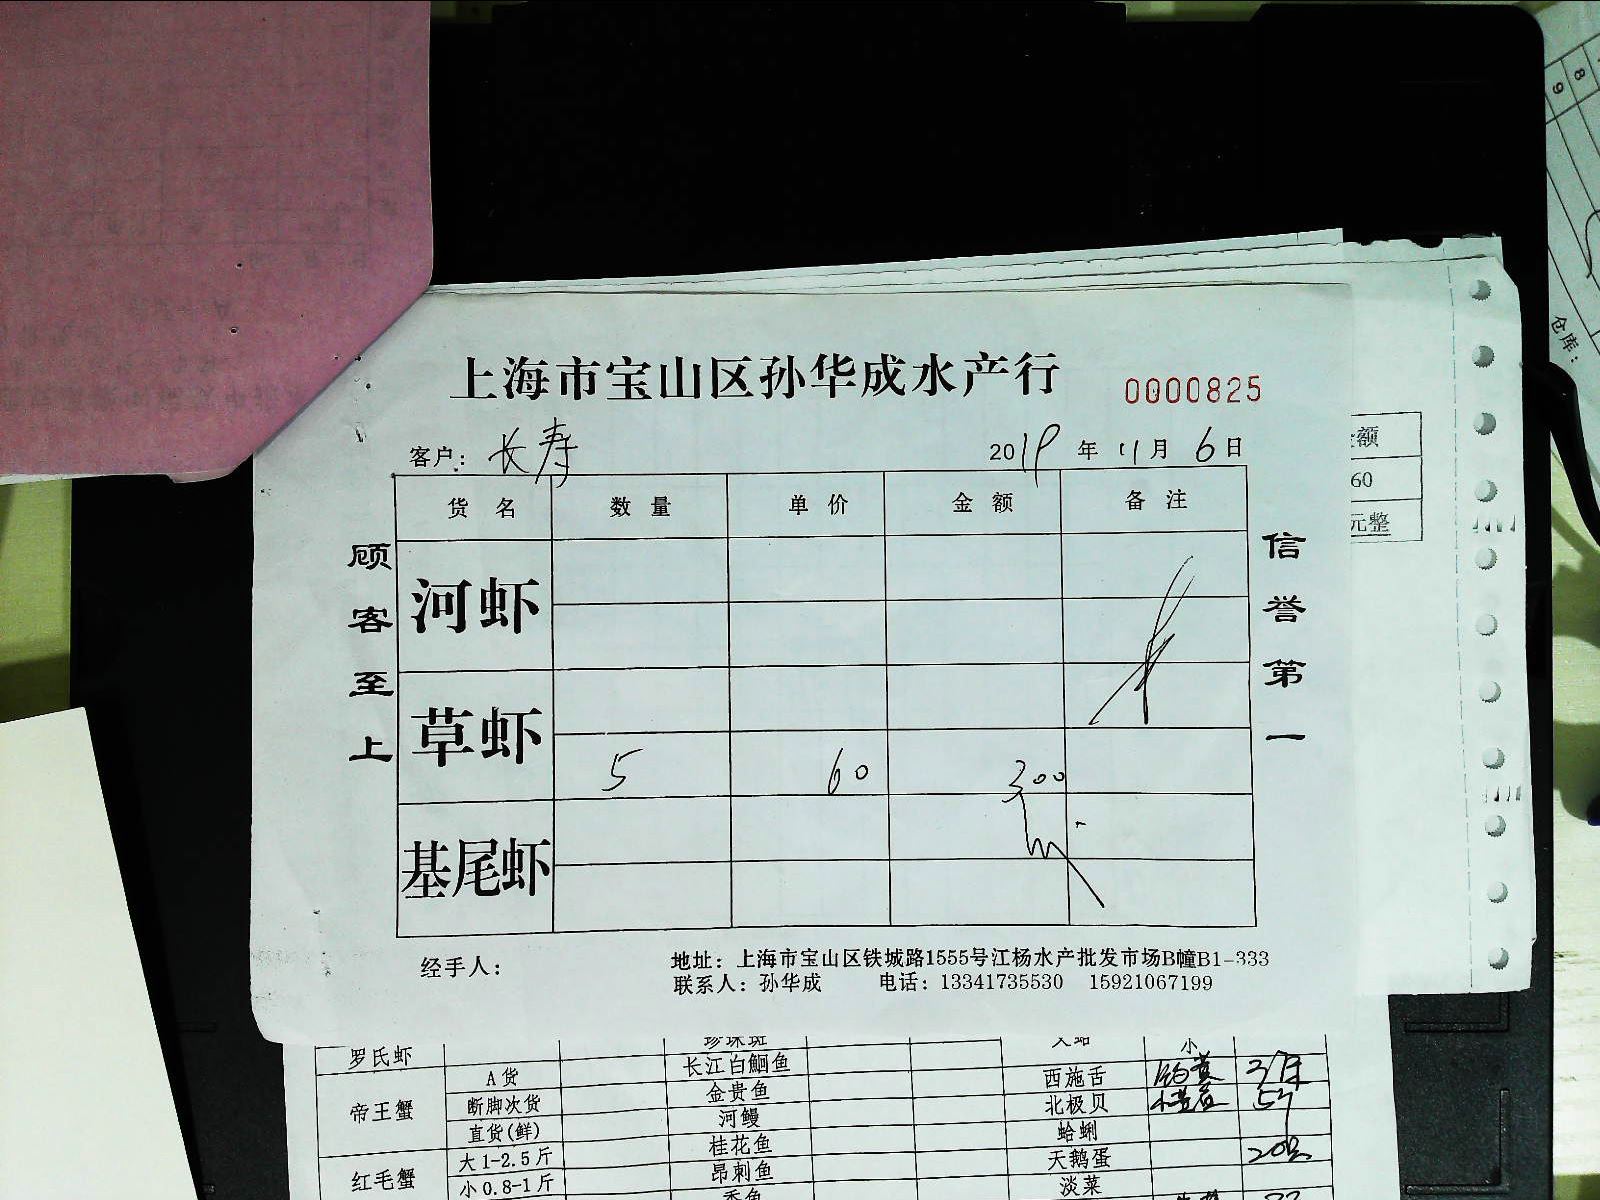 上海市宝山区孙华成水产行 0000825
客户: 长寿 2019 年 11 月 6 日
货名 数量 单价 金额 备注
顾客至上
河虾
草虾
5 60 300
基尾虾
信誉第一
经手人:
地址: 上海市宝山区铁城路1555号江杨水产批发市场B幢B1-333
联系人: 孙华成 电话: 13341735530 15921067199
额
60
元整
9 8
仓库:
罗氏虾 珍珠斑 小
A货 长江白鮰鱼 西施舌
帝王蟹 断脚次货 金贵鱼 北极贝
直货(鲜) 河鳗 蛤蜊
大1-2.5斤 桂花鱼 天鹅蛋
红毛蟹 小0.8-1斤 昂刺鱼 淡菜